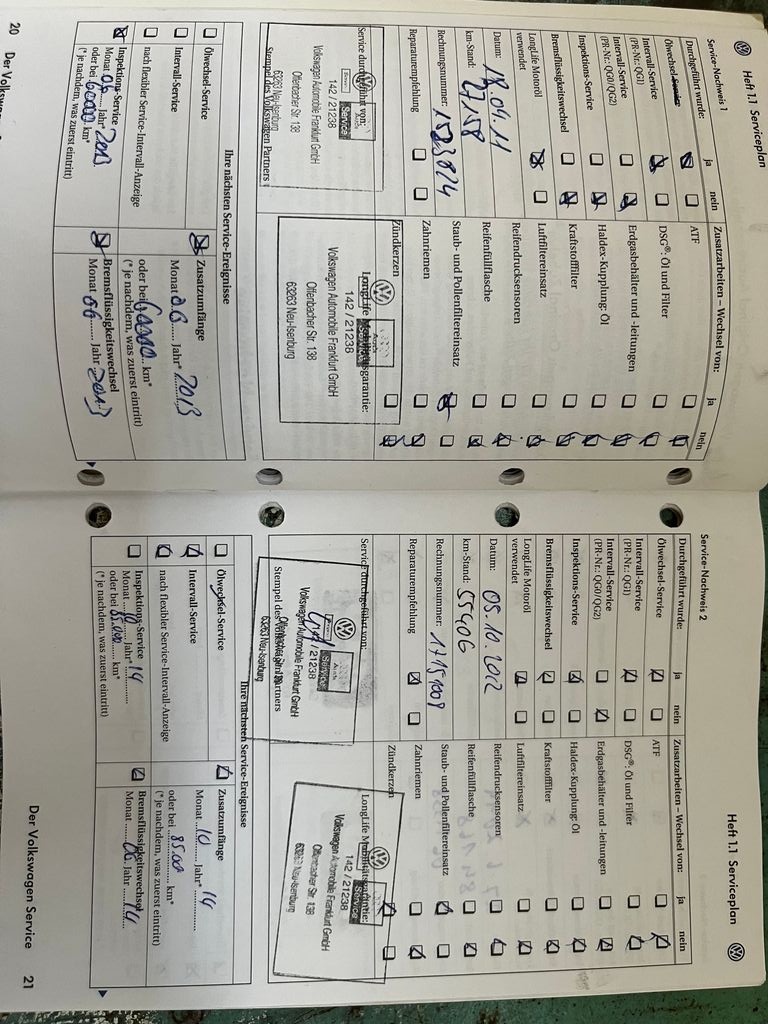 Heft 1.1 Serviceplan
Service-Nachweis 1
Durchgeführt wurde: ja nein
Ölwechsel-Service
Intervall-Service
(PR-Nr.: QG1)
Intervall-Service
(PR-Nr.: QG0/QG2)
Inspektions-Service
Bremsflüssigkeitswechsel
LongLife Motoröl
verwendet
Datum: 18.04.11
km-Stand: 27158
Rechnungsnummer:
Reparaturempfehlung
Service durchgeführt von:
Service
142 / 21238
Volkswagen Automobile Frankfurt GmbH
Offenbacher Str. 138
63263 Neu-Isenburg
Stempel des Volkswagen Partners
Zusatzarbeiten – Wechsel von: ja nein
ATF
DSG®: Öl und Filter
Erdgasbehälter und -leitungen
Haldex-Kupplung: Öl
Kraftstofffilter
Luftfiltereinsatz
Reifendrucksensoren
Reifenfüllflasche
Staub- und Pollenfiltereinsatz
Zahnriemen
Zündkerzen
LongLife Mobilitätsgarantie:
Service
142 / 21238
Volkswagen Automobile Frankfurt GmbH
Offenbacher Str. 138
63263 Neu-Isenburg
Ihre nächsten Service-Ereignisse
Ölwechsel-Service
Intervall-Service
nach flexibler Service-Intervall-Anzeige
Inspektions-Service
Monat 06 Jahr* 2013
oder bei 60000 km*
(* je nachdem, was zuerst eintritt)
Zusatzumfänge
Monat 06 Jahr* 2013
oder bei 60000 km*
(* je nachdem, was zuerst eintritt)
Bremsflüssigkeitswechsel
Monat 06 Jahr 2013
20 Der Volkswagen
Heft 1.1 Serviceplan
Service-Nachweis 2
Durchgeführt wurde: ja nein
Ölwechsel-Service
Intervall-Service
(PR-Nr.: QG1)
Intervall-Service
(PR-Nr.: QG0/QG2)
Inspektions-Service
Bremsflüssigkeitswechsel
LongLife Motoröl
verwendet
Datum: 05.10.2012
km-Stand: 55406
Rechnungsnummer: 17151009
Reparaturempfehlung
Service durchgeführt von:
Service
142 / 21238
Volkswagen Automobile Frankfurt GmbH
Offenbacher Str. 138
63263 Neu-Isenburg
Stempel des Volkswagen Partners
Zusatzarbeiten – Wechsel von: ja nein
ATF
DSG®: Öl und Filter
Erdgasbehälter und -leitungen
Haldex-Kupplung: Öl
Kraftstofffilter
Luftfiltereinsatz
Reifendrucksensoren
Reifenfüllflasche
Staub- und Pollenfiltereinsatz
Zahnriemen
Zündkerzen
LongLife Mobilitätsgarantie:
Service
142 / 21238
Volkswagen Automobile Frankfurt GmbH
Offenbacher Str. 138
63263 Neu-Isenburg
Ihre nächsten Service-Ereignisse
Ölwechsel-Service
Intervall-Service
nach flexibler Service-Intervall-Anzeige
Inspektions-Service
Monat 10 Jahr* 14
oder bei 85.000 km*
(* je nachdem, was zuerst eintritt)
Zusatzumfänge
Monat 10 Jahr* 14
oder bei km*
(* je nachdem, was zuerst eintritt)
Bremsflüssigkeitswechsel
Monat 06 Jahr 14
Der Volkswagen Service 21